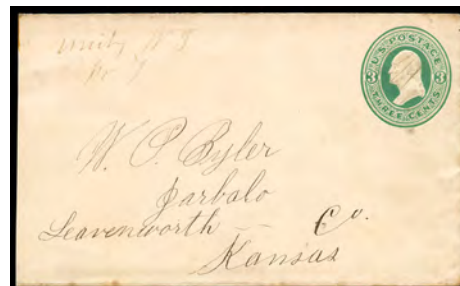 Unity N Y
U.S. POSTAGE
3 3
THREE CENTS
W. P. Byler
Jarbalo
Leavenworth Co.
Kansas